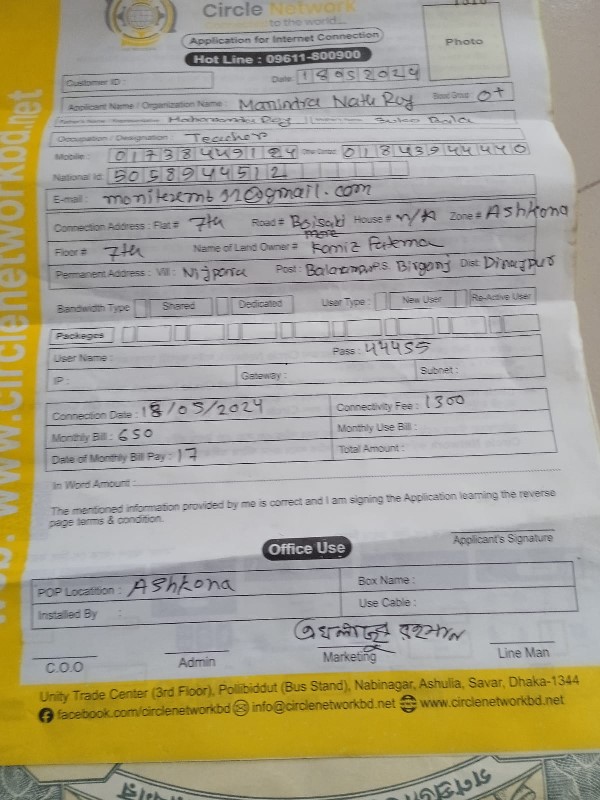 Circle Network
to the world...
Application for Internet Connection
Hot Line : 09611-800900
Photo
Customer ID :
Date: 18052024
Applicant Name / Organization Name : Manindra Nath Roy Blood Group: O+
Roy
Occupation / Designation : Teacher
Mobile : 01738449124 01843944440
National Id: 5058944512
E-mail :
Connection Address : Flat# 7th Road# House# N/A Zone# Ashkona
Floor# 7th Name of Land Owner#
Permanent Address : Vill : Nijpara Post : Birganj Dist: Dinajpur
Bandwidth Type Shared Dedicated User Type : New User Re-Active User
Packages
User Name : Pass : 44455
IP : Gateway : Subnet :
Connection Date : 18/05/2024 Connectivity Fee : 1300
Monthly Bill : 650 Monthly Use Bill :
Date of Monthly Bill Pay : 17 Total Amount :
In Word Amount :
The mentioned information provided by me is correct and I am signing the Application learning the reverse
page terms & condition.
Applicant's Signature
Office Use
POP Locatition : Ashkona Box Name :
Installed By : Use Cable :
রহমান
C.O.O Admin Marketing Line Man
Unity Trade Center (3rd Floor), Pollibiddut (Bus Stand), Nabinagar, Ashulia, Savar, Dhaka-1344
facebook.com/circlenetworkbd info@circlenetworkbd.net www.circlenetworkbd.net
www.circlenetworkbd.net